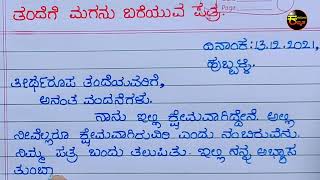 ತಂದೆಗೆ ಮಗನು ಬರೆಯುವ ಪತ್ರ.
ದಿನಾಂಕ:13.12.2021,
ಹುಬ್ಬಳ್ಳಿ.
ತೀರ್ಥರೂಪ ತಂದೆಯವರಿಗೆ,
ಅನಂತ ವಂದನೆಗಳು.
ನಾನು ಇಲ್ಲಿ ಕ್ಷೇಮವಾಗಿದ್ದೇನೆ. ಅಲ್ಲಿ
ನೀವೆಲ್ಲರೂ ಕ್ಷೇಮವಾಗಿರುವಿರಿ ಎಂದು ನಂಬಿರುವೆನು.
ನಿಮ್ಮ ಪತ್ರ ಬಂದು ತಲುಪಿತು. ಇಲ್ಲಿ ನನ್ನ ಅಭ್ಯಾಸ
ತುಂಬಾ